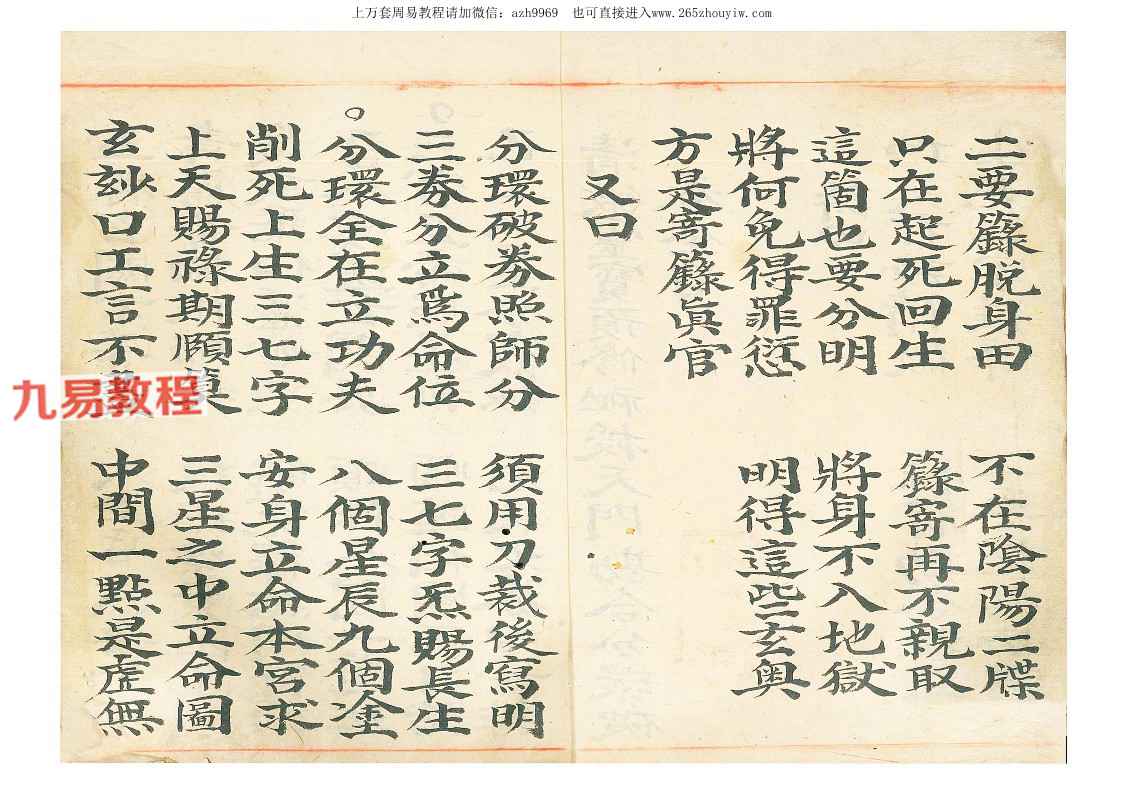 上万套周易教程请加微信：azh9969　也可直接进入www.265zhouyiw.com
二要籙脱身田　不在陰陽二牒
只在起死回生　籙寄再不親取
這箇也要分明　將身不入地獄
將何免得罪愆　明得這些玄奥
方是寄籙眞官
又曰
分環破券照師分　須用刀裁後寫明
三券分立爲命位　三七字炁賜長生
分環全在立功夫　八個星辰九個塗
削死上生三七字　安身立命本宮求
上天賜祿期願　三星之中立命圖
玄玅口工言不　中間一點是虛無
九易教程